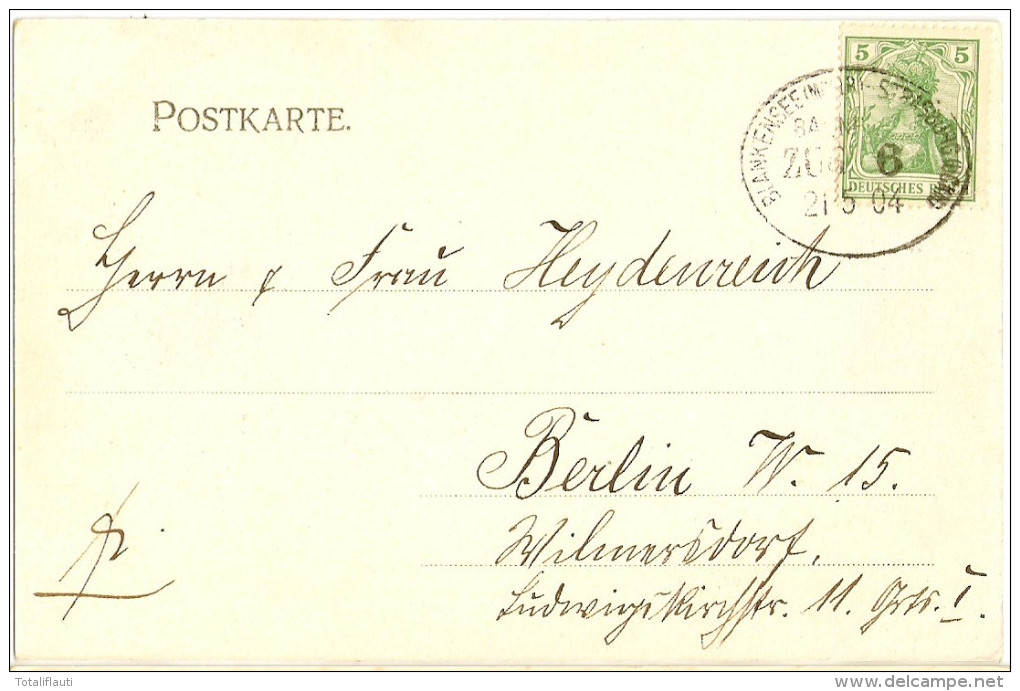 POSTKARTE.
5 5
DEUTSCHES REICH
BLANKENSEE
ZUG 6
21 5 04
Herrn & Frau Heydenreich
Berlin W. 15.
Wilmersdorf.
Ludwigskirchstr. 11. I.
Totaliflauti
delcampe.net